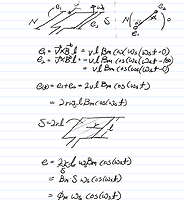 N e₁ e₂ ω₀ S N e₁ e₂
e₁ = v̄×B̄·l̄ = vl Bm cos(ωst-0)
e₂ = v̄×B̄·l̄ = -vl Bm cos(ωst-180)
= vl Bm cos(ωst-0)
e(t) = e₁+e₂ = 2vl Bm cos(ωst)
= 2rωsl Bm cos(ωst)
S = 2rl
e = 2rl ωs Bm cos(ωst)
S
= Bm·S ωs cos(ωst)
= ϕm ωs cos(ωst)